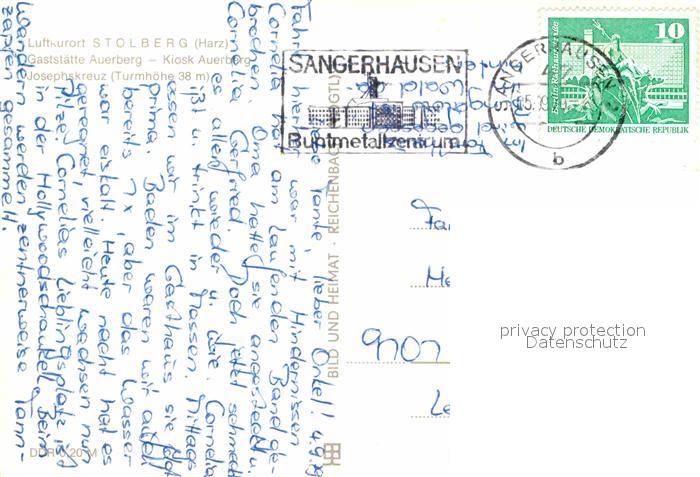 Luftkurort STOLBERG (Harz)
Gaststätte Auerberg – Kiosk Auerberg
Josephskreuz (Turmhöhe 38 m)
SANGERHAUSEN
Buntmetallzentrum
SANGERHAUSEN
b
10
Berlin-Rathausstraße
DEUTSCHE DEMOKRATISCHE REPUBLIK
Liebe Tante, lieber Onkel! 4.9.
Fahrt hierher war mit Hindernissen.
Cornelia hat am laufenden Band ge-
brochen, Oma hatte sie angesteckt u.
Cornelia Gerfried. Doch jetzt schmeckt
es allen wieder u. Cornelia
ißt u. trinkt in Massen. Mittags
essen wir im Gasthaus, sie
prima. Baden waren wir auch
bereits 1x, aber das Wasser
war eiskalt. Heute nacht hat es
geregnet, vielleicht wachsen nun
Pilze. Cornelias Lieblingsplatz ist
in der Hollywoodschaukel. Beim
Wandern werden zentnerweise Tann-
zapfen gesammelt.
BILD UND HEIMAT · REICHENBACH (VOGTL)
Fa
He
9101
Le
privacy protection
Datenschutz
DDR 0,20 M